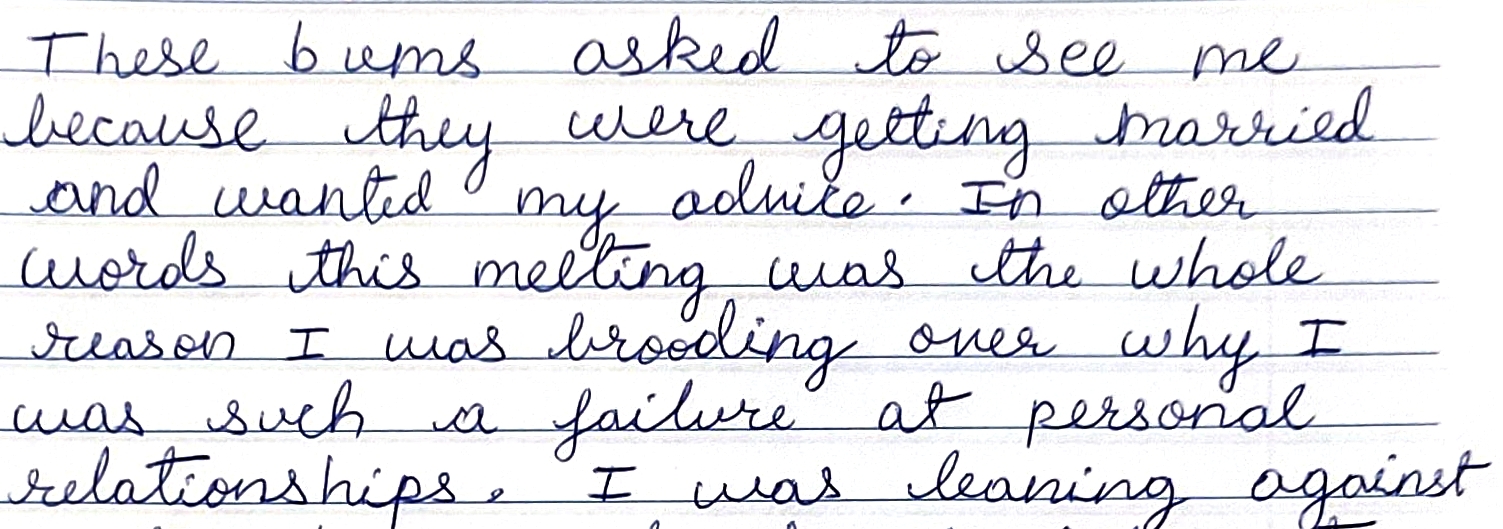 These bums asked to see me
because they were getting married
and wanted my advice. In other
words this meeting was the whole
reason I was brooding over why I
was such a failure at personal
relationships. I was leaning against